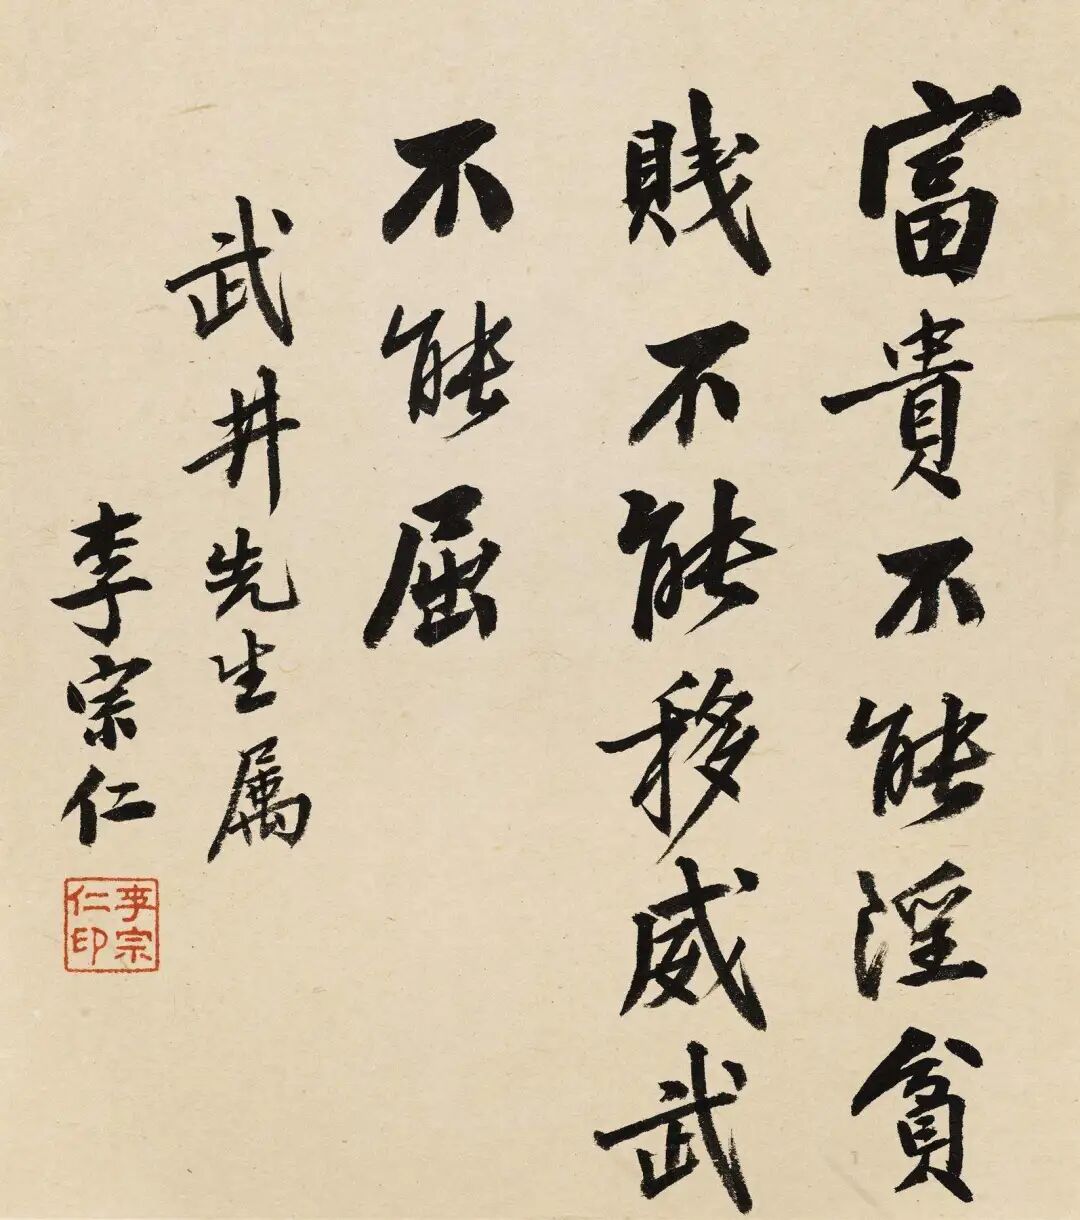 富貴不能淫貧
賤不能移威武
不能屈
武井先生属
李宗仁
李宗仁印